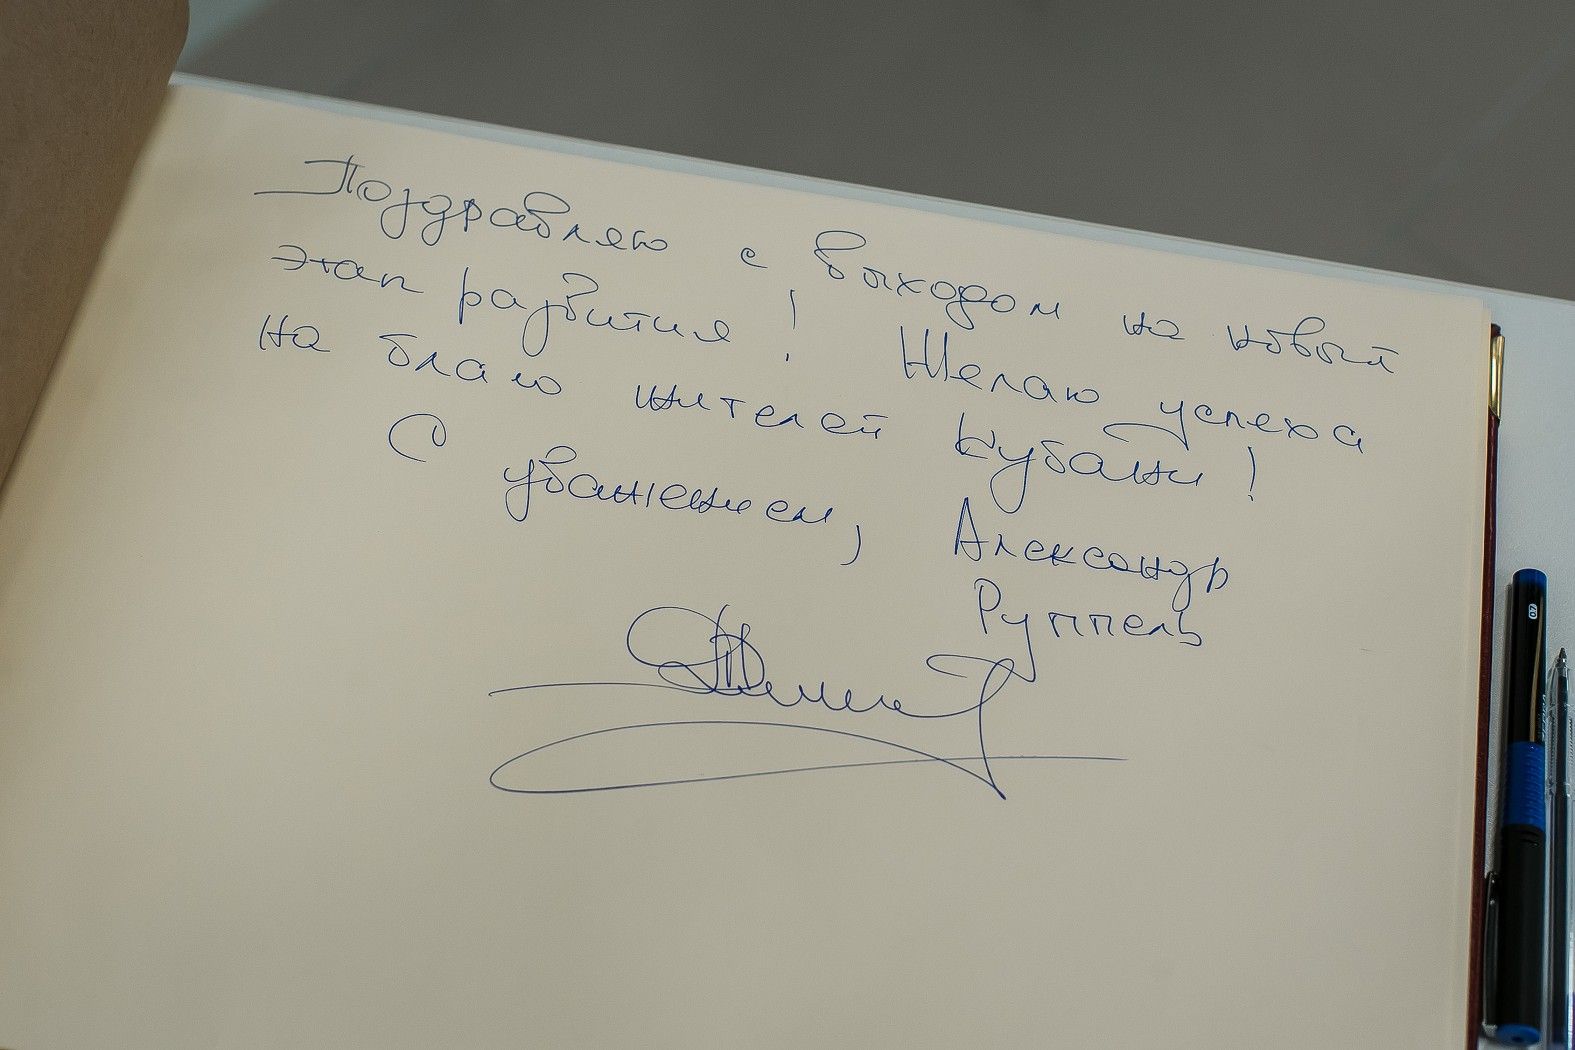 Поздравляю с выходом на новый
этап развития! Желаю успеха
на благо жителей Кубани!
С уважением, Александр
Руппель
07